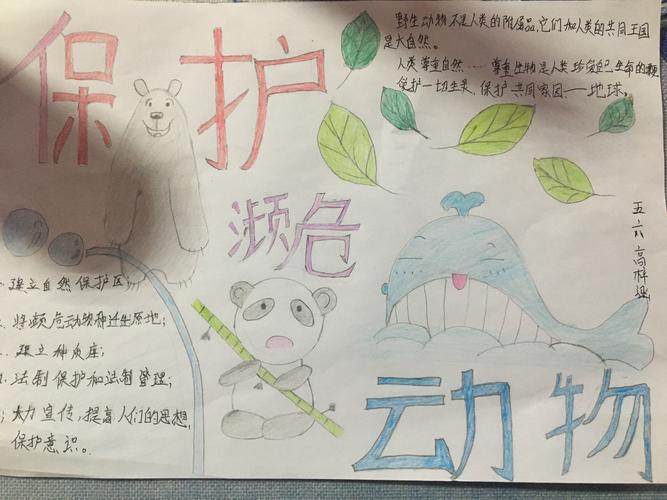 保护
野生动物不是人类的附属品,它们和人类的共同王国
是大自然。
人类尊重自然……尊重生物是人类珍爱自己生命的
爱护一切生灵,保护共同家园——地球。
濒危
五六 高
、建立自然保护区;
、将濒危动物种迁出原地;
、建立种质库;
、法制保护和法制管理;
、大力宣传,提高人们的思想,
保护意识。
动物